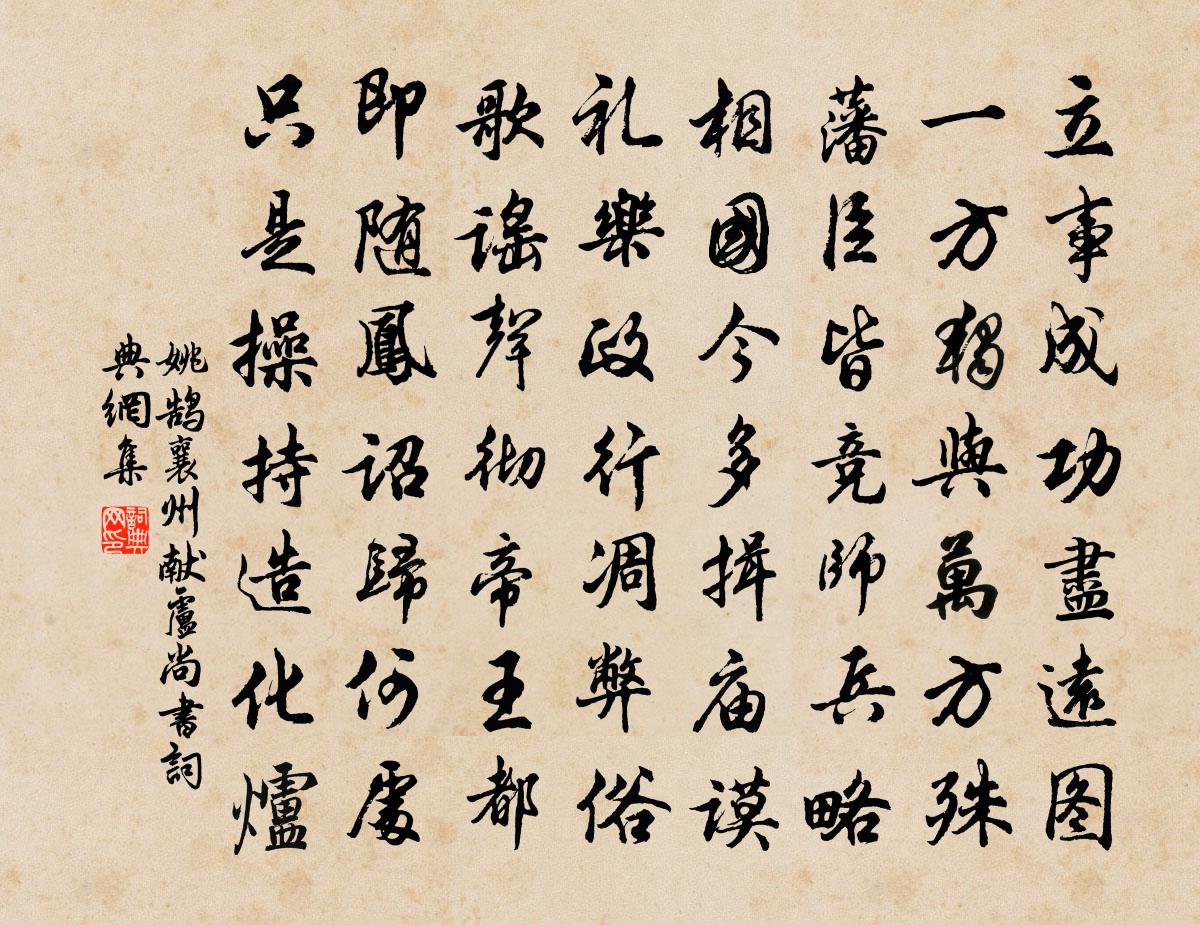 立事成功盡遠图
一方獨與萬方殊
藩臣皆竞師兵略
相國今多揖庙謨
礼樂政行凋弊俗
歌謠聲彻帝王都
即随鳳诏歸何處
只是操持造化爐
姚鹄襄州献盧尚書詞
典網集
詞典网印